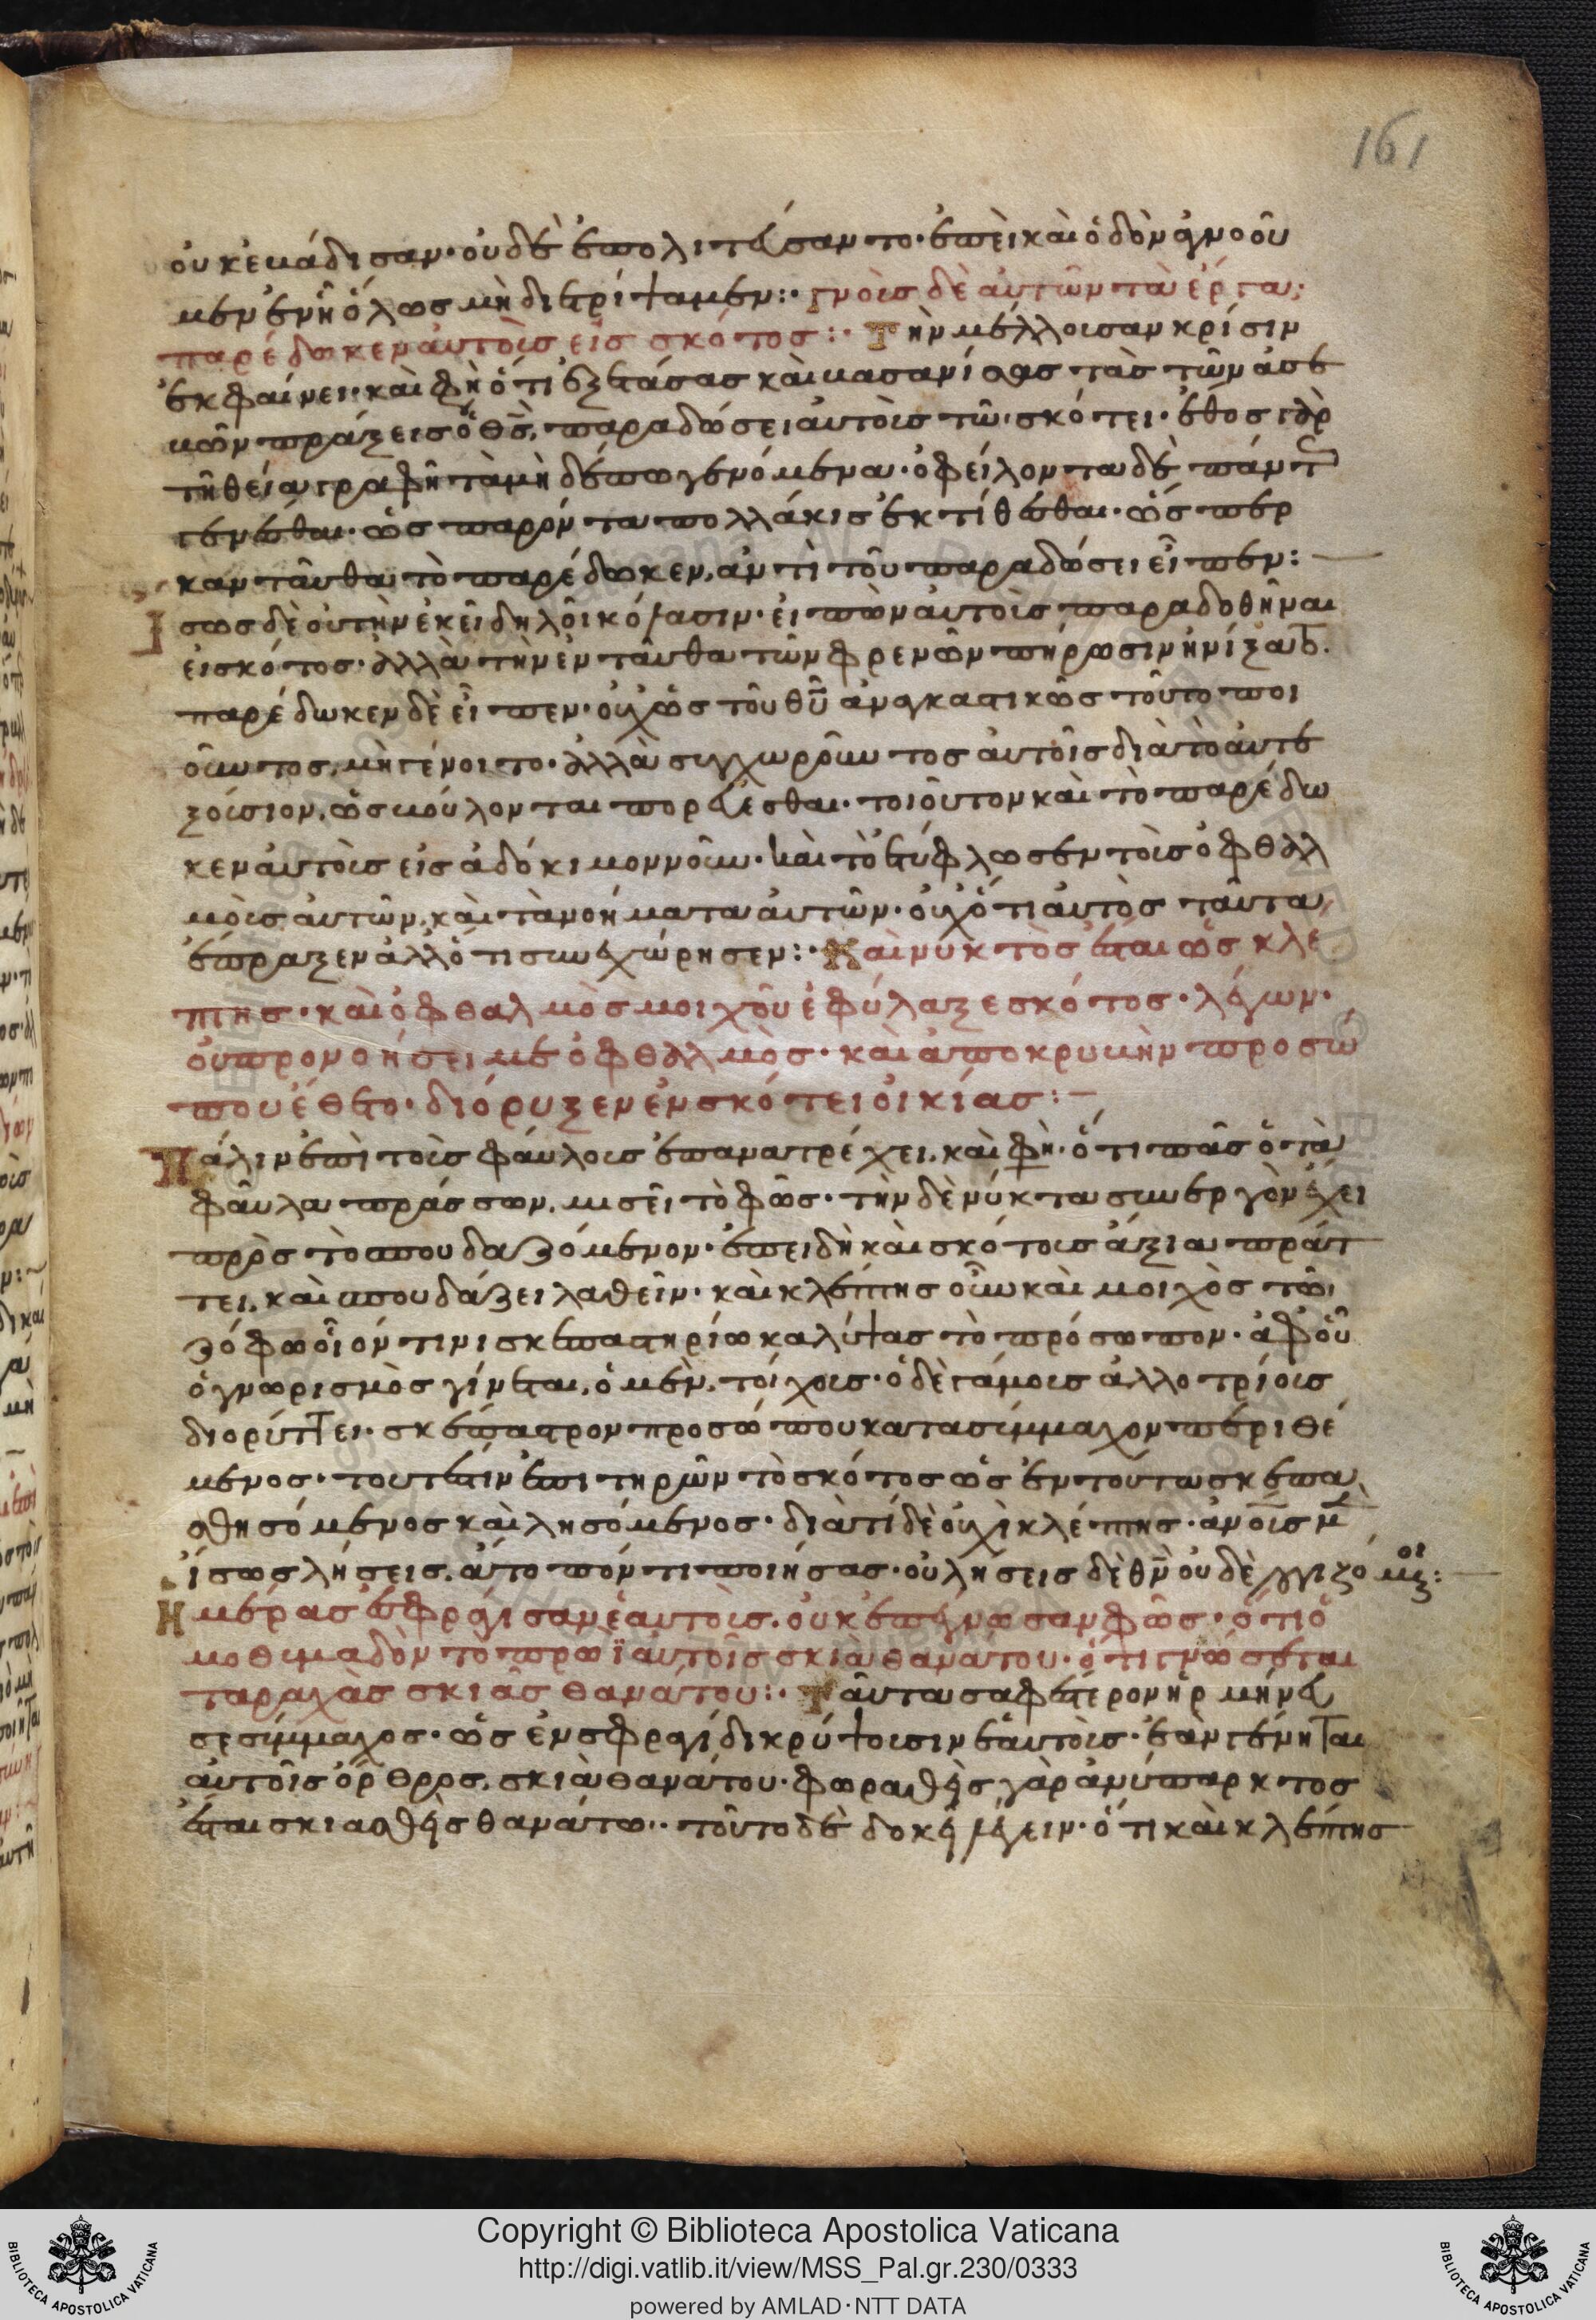 161
οὐκ ἐβάδισαν· οὐδὲ ἐπολιτεύσαντο· ἐπεὶ καὶ ὁδὸν ἀγνοοῦ
μεν ἐν ᾗ ὅλως μὴ διετρίψαμεν:· γνοὺς δὲ αὐτῶν τὰ ἔργα,
παρέδωκεν αὐτοὺς εἰς σκότος:· Τὴν μέλλουσαν κρίσιν
ἐκφαίνει· καὶ φη ὅτι ἐξετάσας καὶ βασανίσας τὰς τῶν ἀσε
βῶν πράξεις ὁ θς, παραδώσει αὐτοὺς τῶ σκότει· ἔθος γὰρ
τῆ θεία γραφῆ τὰ μηδέπω γενόμενα· ὀφείλοντα δὲ πάντ
γενέσθαι· ὡς παρόντα πολλάκις ἐκτίθεσθαι· ὥσπερ
κἀνταῦθα τὸ παρέδωκεν, ἀντὶ τοῦ παραδώσει εἶπεν:
Ἴσως δὲ οὐ τὴν ἐκεῖ δηλοῖ κόλασιν· εἰπὼν αὐτοὺς παραδοθῆναι
εἰς σκότος· ἀλλὰ τὴν ἐνταῦθα τῶν φρενῶν πήρωσιν ἠνίξατ.
παρέδωκεν δὲ εἶπεν· οὐχ ὡς τοῦ θυ ἀναγκαστικῶς τοῦτο ποι
οῦντος, μὴ γένοιτο· ἀλλὰ συγχωροῦντος αὐτοῖς διὰ τὸ αὐτε
ξούσιον, ὡς βούλονται πορεύεσθαι· τοιοῦτον καὶ τὸ παρέδω
κεν αὐτοὺς εἰς ἀδόκιμον νοῦν· καὶ τὸ ἐτύφλωσεν τοὺς ὀφθαλ
μοὺς αὐτῶν, καὶ τὰ νοήματα αὐτῶν· οὐχ ὅτι αὐτὸς ταῦτα
ἔπραξεν ἀλλ ὅτι συνεχώρησεν:· Καὶ νυκτὸς ἔσται ὡς κλέ
πτης· καὶ ὀφθαλμὸς μοιχοῦ ἐφύλαξε σκότος· λέγων·
οὐ προνοήσει με ὀφθαλμὸς· καὶ ἀποκρυβὴν προσώ
που ἔθετο· διόρυξεν ἐν σκότει οἰκίας:
Πάλιν ἐπὶ τοὺς φαύλους ἐπανατρέχει, καὶ φη· ὅτι πᾶς ὁ τὰ
φαῦλα πράσσων, μισεῖ τὸ φῶς· τὴν δὲ νύκτα συνεργὸν ἔχει
πρὸς τὸ σπουδαζόμενον· ἐπειδὴ καὶ σκότους ἄξια πράτ
τει, καὶ σπουδάζει λαθεῖν· καὶ κλέπτης οὖν καὶ μοιχὸς τῶ
ζόφω οἷόν τινι σκεπαστηρίω καλύψας τὸ πρόσωπον· ἀφ οὗ
ὁ γνωρισμὸς γίνεται, ὁ μὲν, τοίχους· ὁ δὲ γάμους ἀλλοτρίους
διορύττει· σκέπαστρον προσώπου κατὰ σύμμαχον περιθέ
μενος· τουτέστιν ἐπιτηρῶν τὸ σκότος ὡς ἐν τούτω σκεπα
σθησόμενος καὶ λησόμενος· διὰ τί δὲ οὐχὶ κλέπτης· ἀνους μ
ἴσως λήσεις, ἄτοπόν τι ποιήσας· οὐ λήσεις δὲ θν οὐδὲ
Ἡμέρας ἐσφράγισαν ἑαυτοὺς· οὐκ ἐπέγνωσαν φῶς· ὅτι ὁ
μοθυμαδὸν τὸ πρωῒ αὐτοῖς σκιὰ θανάτου· ὅτι γνώσεται
ταραχὰς σκιᾶς θανάτου:· Ταῦτα σαφέστερον ἡρμήνευ
σε σύμμαχος· ὡς ἐν σφραγίδι κρύψουσιν ἑαυτοὺς· ἐὰν γένηται
αὐτοῖς ὄρθρος, σκιὰ θανάτου· φωραθεὶς γὰρ ἀνύπαρκτος
ἔσται σκιασθεὶς θανάτω·· τοῦτο δὲ δοκεῖ λέγειν· ὅτι καὶ κλέπτης
Copyright © Biblioteca Apostolica Vaticana
http://digi.vatlib.it/view/MSS_Pal.gr.230/0333
powered by AMLAD·NTT DATA
BIBLIOTECA APOSTOLICA VATICANA
BIBLIOTECA APOSTOLICA VATICANA